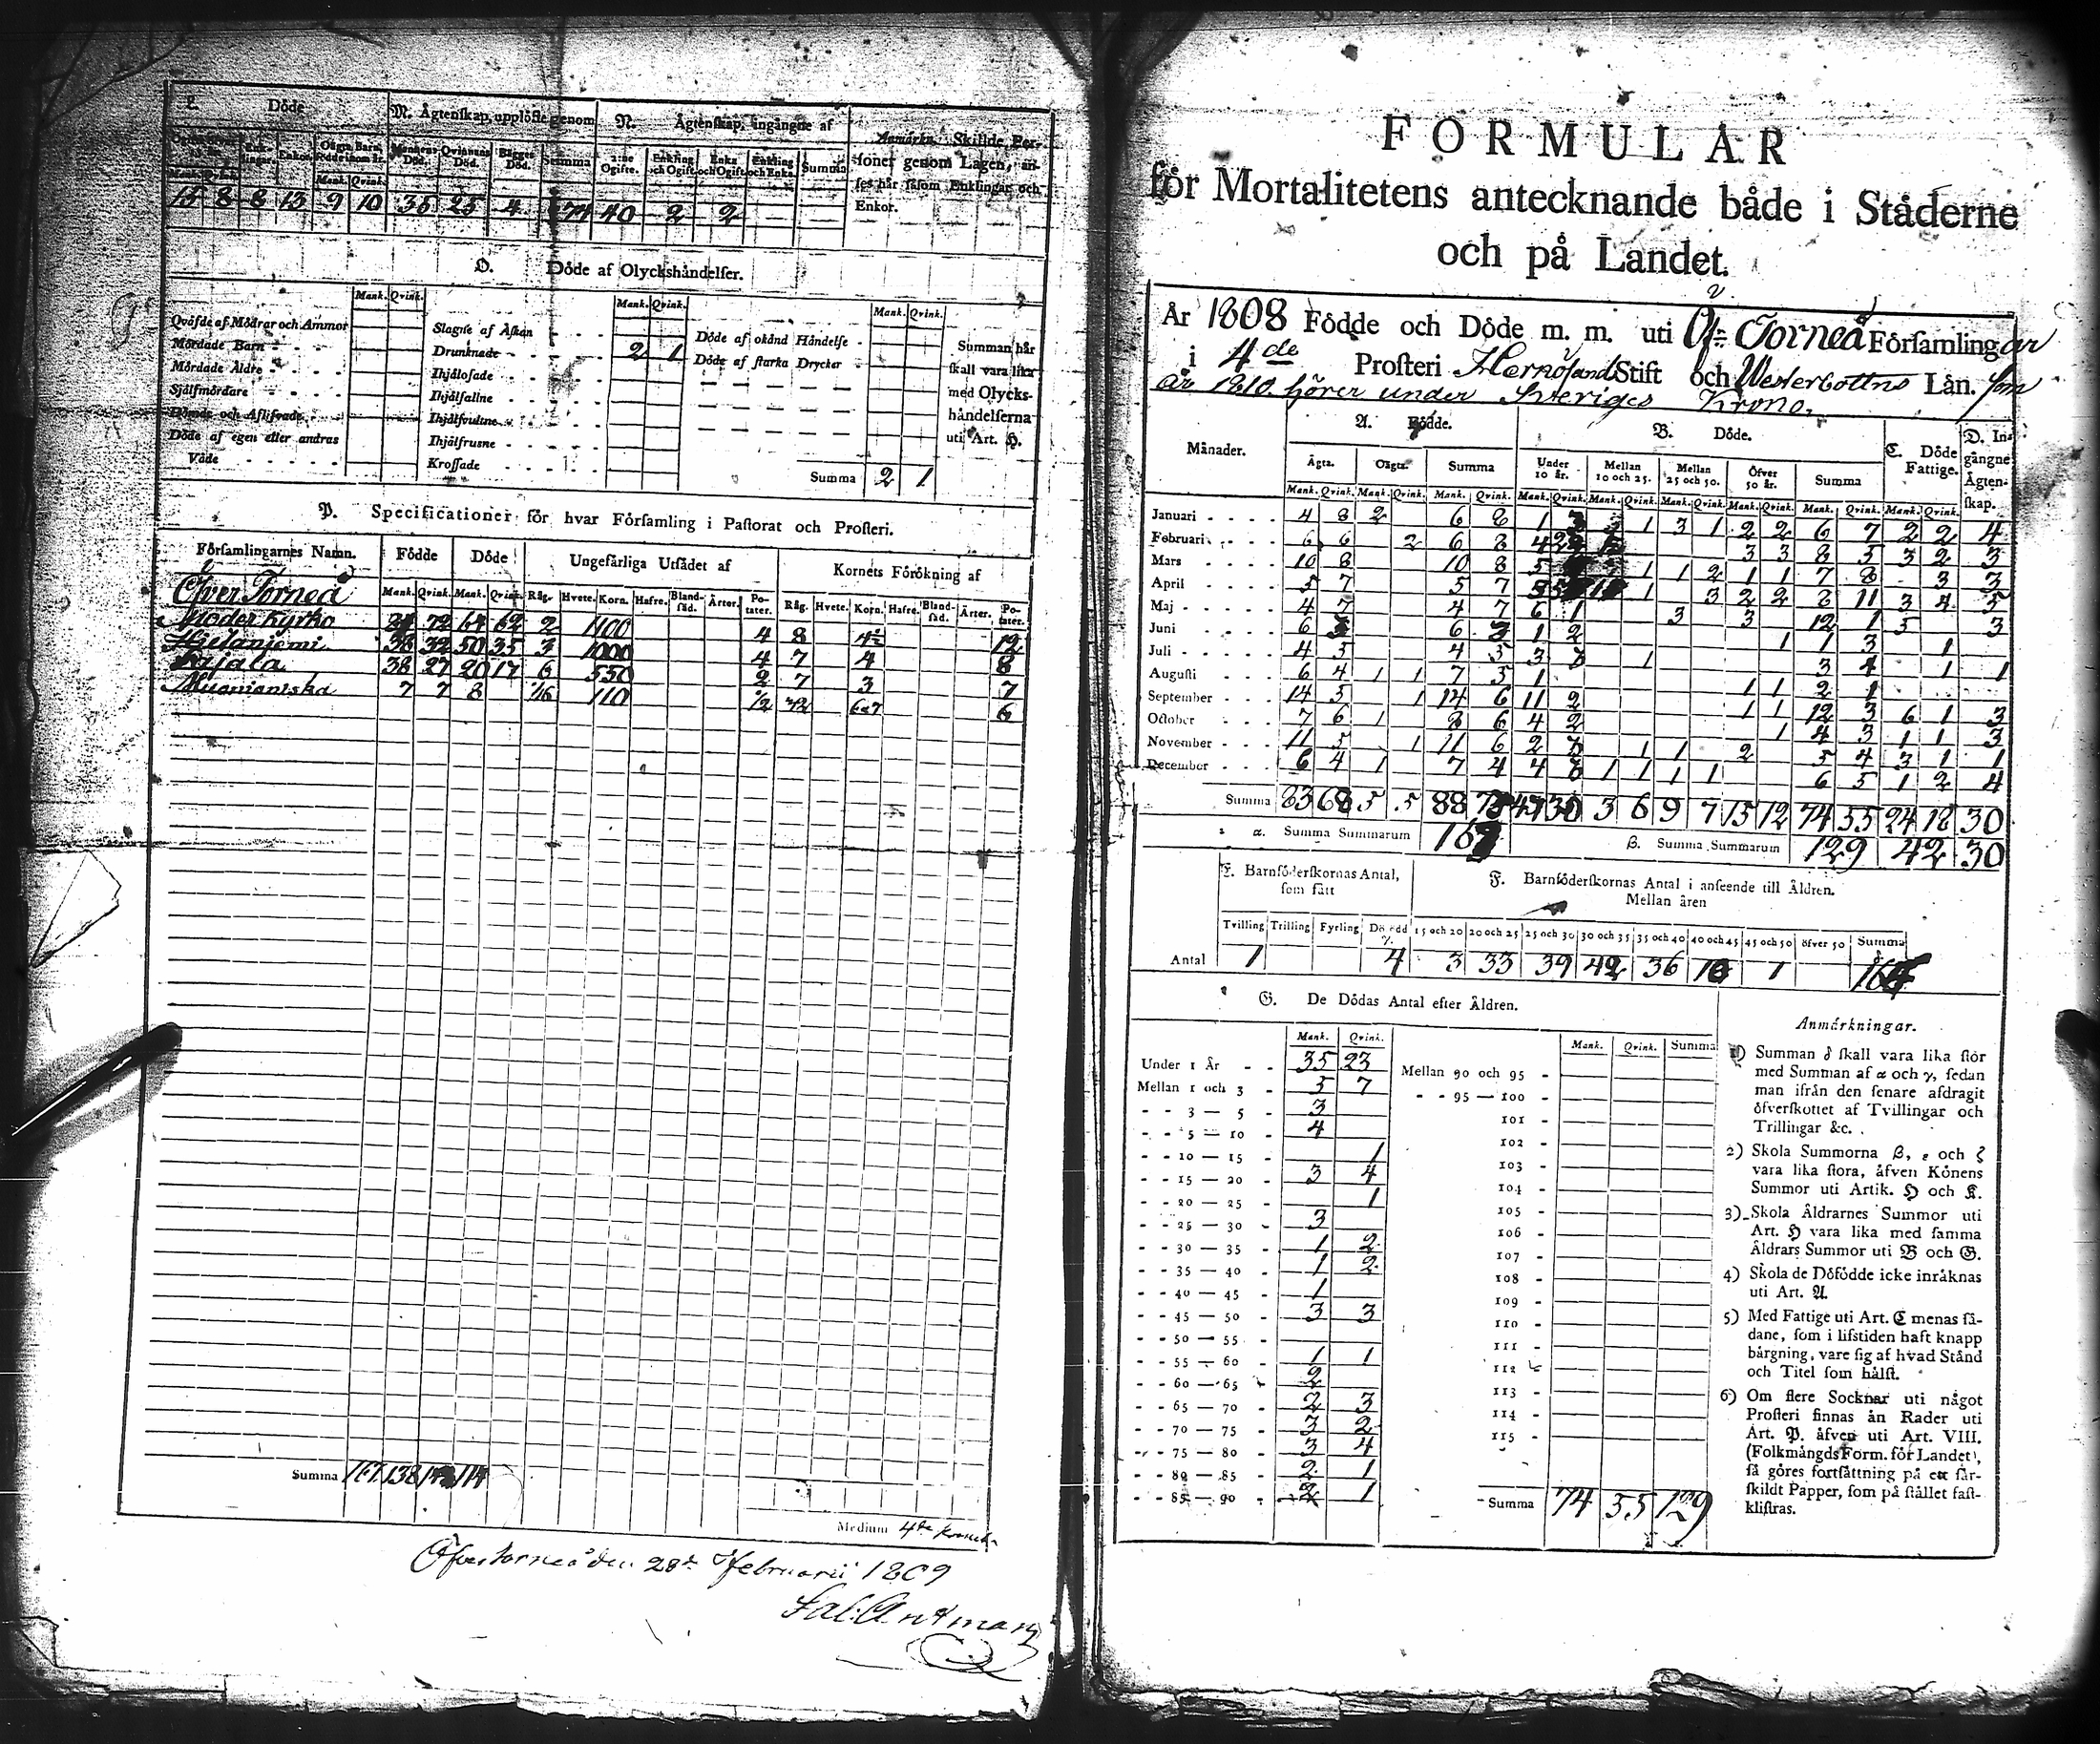 L. Döde
M. Ägtenskap, upplöste genom
N. Ägtenskap, ingångne af
Anmärkn. Skillde Per-
soner genom Lagen, an-
ses här såsom Enklingar och
Enkor.
Enkor.
Oägta Barn,
Mannens Död.
Qvinnans Död.
Summa
2:ne Ogifte.
Enkling och Ogift.
Enka och Ogift.
Enkling och Enka.
Summa
Mank. Qvink.
15 8 8 13 9 10 35 25 4 40 2 2
O. Döde af Olyckshändelser.
Mank. Qvink.
Qväfde af Mödrar och Ammor
Mördade Barn
Mördade Äldre
Självmördare
Dömde och Aflifvade
Döde af egen eller andras
Våde
Mank. Qvink.
Slagne af Åskan
Drunknade 2 1
Ihjälosade
Ihjälfallne
Ihjälfrusne
Krossade
Mank. Qvink.
Döde af okänd Händelse
Döde af starka Drycker
Summa 2 1
Summan här
skall vara lika
med Olycks-
händelserna
uti Art. H.
P. Specificationer för hvar Församling i Pastorat och Prosteri.
Församlingarnes Namn. Födde Döde Ungefärliga Utsädet af Kornets Förökning af
Mank. Qvink. Mank. Qvink. Råg. Hvete. Korn. Hafre. Bland-säd. Ärter. Po-tater. Råg. Hvete. Korn. Hafre. Bland-säd. Ärter. Po-tater.
Öfver Torneå
Moderkyrko 72 2 1100 4 8 4½ 12
Hietaniemi 38 32 50 35 3 1000 4 7 4 8
Kajala 38 27 20 17 6 550 2 7 3 7
Muonioniska 7 7 8 1/16 110 ½ 6
Summa 138
Medium
Öfvertorneå den 28de Februarii 1809
Sal: Antman
FORMULÄR
för Mortalitetens antecknande både i Städerne
och på Landet.
År 1808 Födde och Döde m. m. uti Öf: Torneå Församlingar
i 4de Prosteri Hernösands Stift och Westerbottns Län. som
år 1810. hörer under Sveriges Krono.
Månader. A. Födde. B. Döde. C. Döde Fattige. D. In-gångne Ägten-skap.
Ägta. Oägta. Summa Under 10 år. Mellan 10 och 25. Mellan 25 och 50. Öfver 50 år. Summa
Mank. Qvink. Mank. Qvink. Mank. Qvink. Mank. Qvink. Mank. Qvink. Mank. Qvink. Mank. Qvink. Mank. Qvink. Mank. Qvink.
Januari 4 8 2 6 8 1 1 3 1 2 2 6 7 2 2 4
Februari 6 6 2 6 8 3 3 8 5 3 2 3
Mars 10 8 10 8 5 1 1 2 1 1 7 8 3 3
April 5 7 5 7 1 3 2 2 8 11 3 4 5
Maj 4 7 4 7 6 1 3 3 12 1 5 3
Juni 6 6 1 2 1 1 3 1
Juli 4 5 4 5 3 1 3 4 1 1
Augusti 6 4 1 1 7 5 1 1 1 2 1
September 14 5 1 14 6 11 2 1 1 12 3 6 1 3
October 7 6 1 8 6 4 2 1 4 3 1 1 3
November 11 5 1 11 6 2 1 1 2 5 4 3 1 1
December 6 4 1 7 4 4 1 1 1 1 6 5 1 2 4
Summa 83 68 5 5 88 3 6 9 7 15 12 74 55 24 18 30
α. Summa Summarum
β. Summa Summarum 129 42 30
E. Barnföderskornas Antal,
som fått
F. Barnföderskornas Antal i anseende till Åldren.
Mellan åren
Tvilling Trilling Fyrling Dödfödd 15 och 20 20 och 25 25 och 30 30 och 35 35 och 40 40 och 45 45 och 50 öfver 50 Summa
Antal 1 4 3 33 39 42 36 1
G. De Dödas Antal efter Åldren.
Mank. Qvink. Mank. Qvink. Summa
Under 1 År 35 23
Mellan 1 och 3 5 7
3 — 5 3
5 — 10 4
10 — 15 1
15 — 20 3 4
20 — 25 1
25 — 30 3
30 — 35 1 2
35 — 40 1 2
40 — 45 1
45 — 50 3 3
50 — 55
55 — 60 1 1
60 — 65 2
65 — 70 2 3
70 — 75 3 2
75 — 80 3 4
80 — 85 2 1
85 — 90 2 1
Mellan 90 och 95
95 — 100
101
102
103
104
105
106
107
108
109
110
111
112
113
114
115
Summa 74 55 129
Anmärkningar.
1) Summan δ skall vara lika stor
med Summan af α och γ, sedan
man ifrån den senare afdragit
öfverskottet af Tvillingar och
Trillingar &c.
2) Skola Summorna β, ε och ζ
vara lika stora, äfven Könens
Summor uti Artik. H och K.
3) Skola Åldrarnes Summor uti
Art. H vara lika med samma
Åldrars Summor uti B och G.
4) Skola de Döfödde icke inräknas
uti Art. A.
5) Med Fattige uti Art. C menas så-
dane, som i lifstiden haft knapp
bärgning, vare sig af hvad Stånd
och Titel som hälst.
6) Om flere Socknar uti något
Prosteri finnas än Rader uti
Art. P. äfven uti Art. VIII.
(Folkmängds Form. för Landet),
så göres fortsättning på ett sär-
skildt Papper, som på stället fast-
klistras.